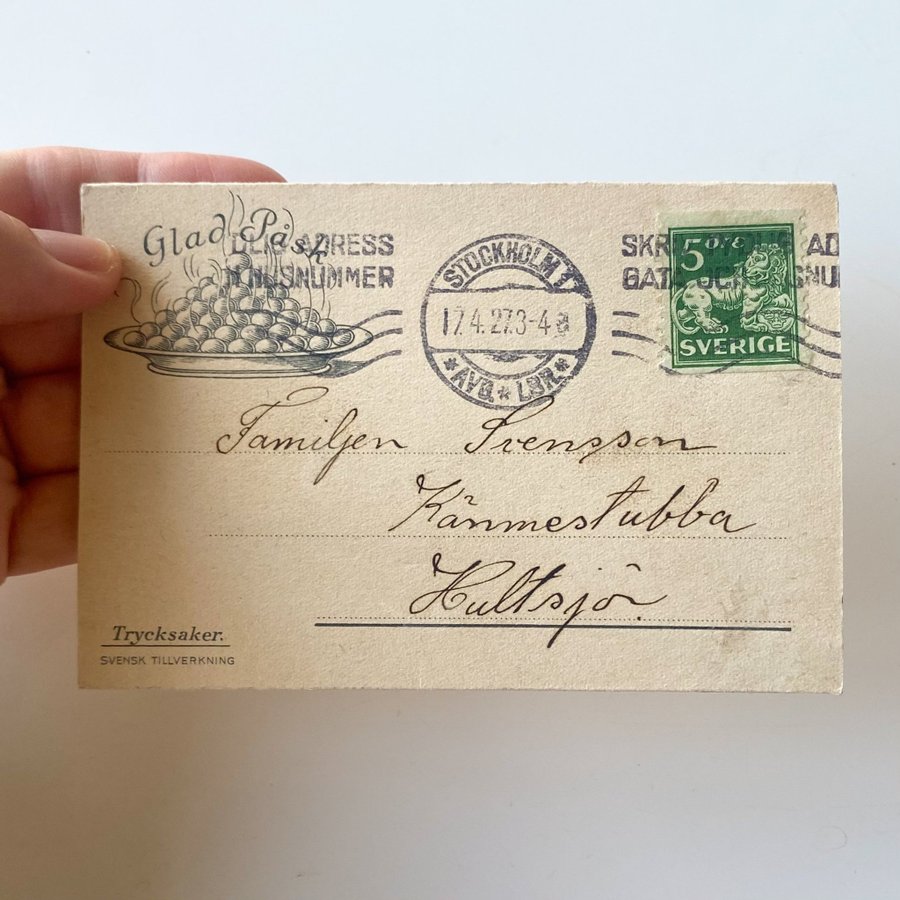 Glad Påsk
DLIG ADRESS
HUSNUMMER
STOCKHOLM 1
17.4.27.3-4
*AVG.*LBR.*
SKRIV TYDLIG AD
GATA OCH HUSNU
5 öre
SVERIGE
Familjen Svensson
Känmestubba
Hultsjö.
Trycksaker.
SVENSK TILLVERKNING